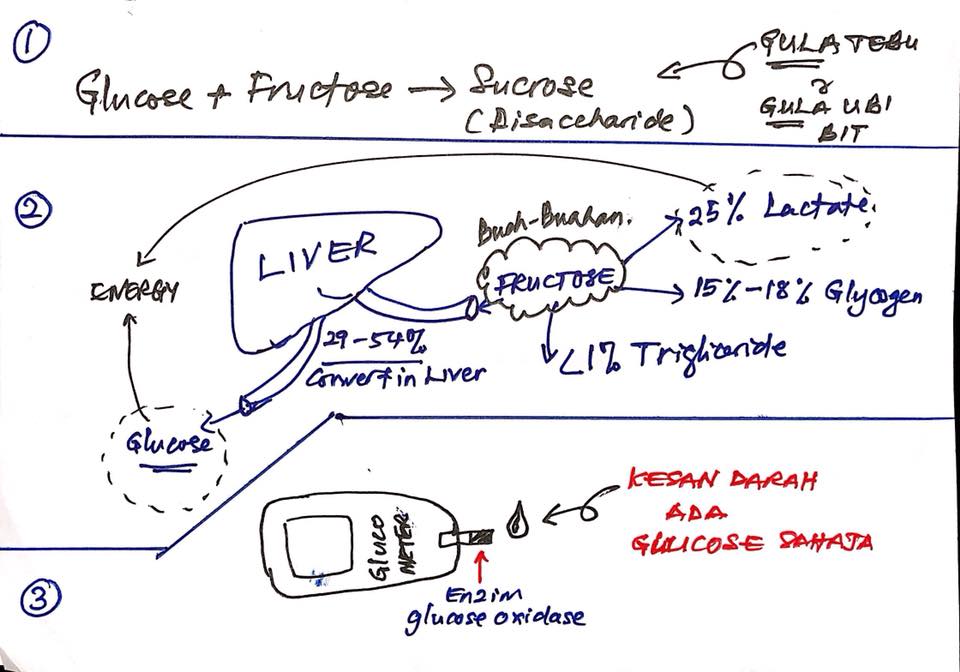 1
GULA TEBU
Glucose + Fructose → Sucrose
&
(Disaccharide)
GULA UBI
BIT
2
25% Lactate
Buah-Buahan.
LIVER
FRUCTOSE
ENERGY
15%-18% Glycogen
29-54%
<1% Trigliceride
Convert in Liver
Glucose
KESAN DARAH
ADA
GLUCOSE SAHAJA
GLUCO
METER
3
Enzim
glucose oxidase